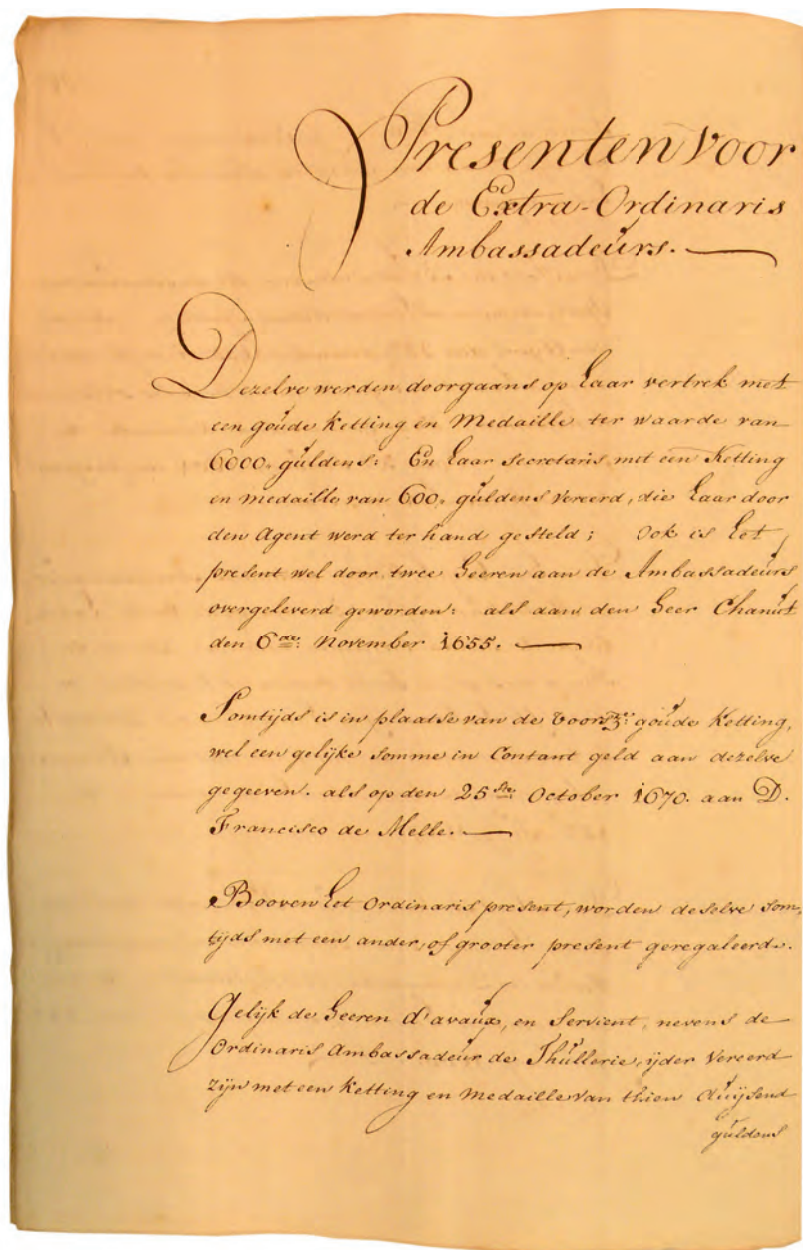 Presenten voor
de Extra-Ordinaris
Ambassadeurs.
Dezelve werden doorgaans op haar vertrek met
een goude ketting en Medaille ter waarde van
6000. guldens: En haar secretaris met een Ketting
en medaille van 600. guldens vereerd, die haar door
den Agent werd ter hand gesteld; ook is het
present wel door twee heeren aan de Ambassadeurs
overgeleverd geworden: als aan den heer Chanut
den 6den: November 1655.
Somtijds is in plaatse van de voorsz: goude Ketting,
wel een gelijke somme in Contant geld aan dezelve
gegeeven. als op den 25ste: October 1670. aan D.
Francisco de Melle.
Booven het ordinaris present, worden deselve som,
tijds met een ander, of grooter present geregaleerd.
Gelijk de heeren d'avaux, en Servient, nevens de
Ordinaris Ambassadeur de Thullerie, ijder vereerd
zijn met een Ketting en medaille van thien duijsend
guldens